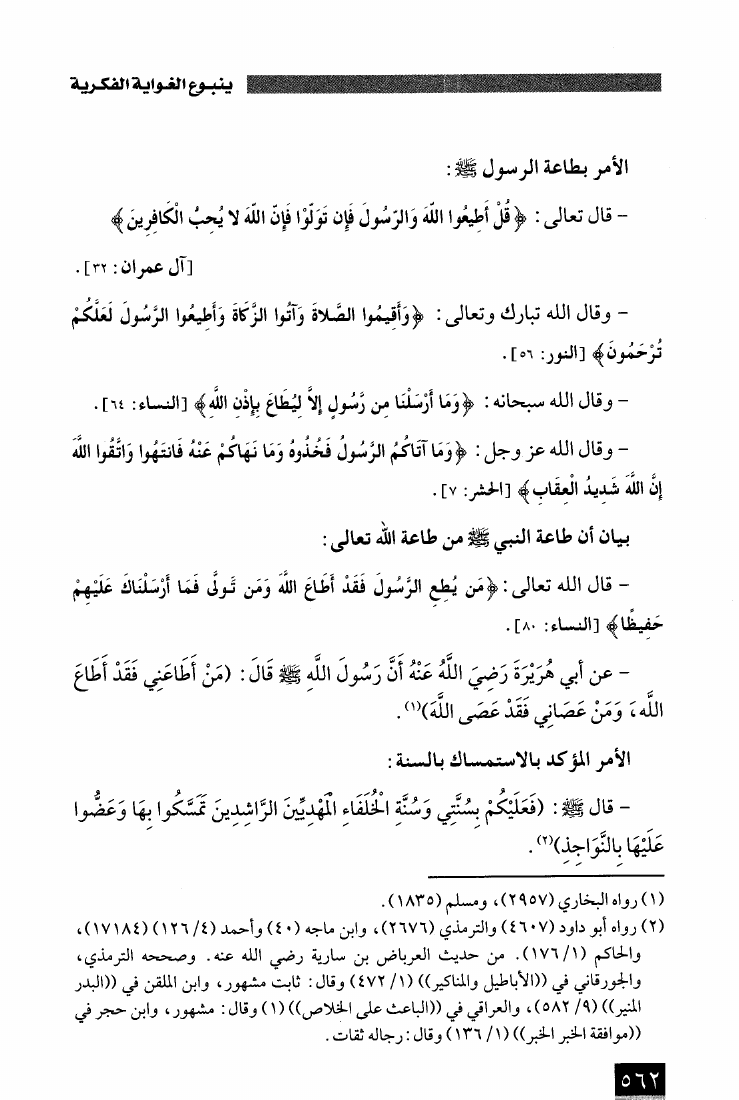 ينبوع الغواية الفكرية
الأمر بطاعة الرسول ﷺ:
– قال تعالى: ﴿قُلْ أَطِيعُوا اللّهَ وَالرَّسُولَ فَإِن تَوَلَّوْا فَإِنَّ اللّهَ لا يُحِبُّ الْكَافِرِينَ﴾
[آل عمران: ٣٢].
– وقال الله تبارك وتعالى: ﴿وَأَقِيمُوا الصَّلاةَ وَآتُوا الزَّكَاةَ وَأَطِيعُوا الرَّسُولَ لَعَلَّكُمْ
تُرْحَمُونَ﴾ [النور: ٥٦].
– وقال الله سبحانه: ﴿وَمَا أَرْسَلْنَا مِن رَّسُولٍ إِلاَّ لِيُطَاعَ بِإِذْنِ اللَّهِ﴾ [النساء: ٦٤].
– وقال الله عز وجل: ﴿وَمَا آتَاكُمُ الرَّسُولُ فَخُذُوهُ وَمَا نَهَاكُمْ عَنْهُ فَانتَهُوا وَاتَّقُوا اللَّهَ
إِنَّ اللَّهَ شَدِيدُ الْعِقَابِ﴾ [الحشر: ٧].
بيان أن طاعة النبي ﷺ من طاعة الله تعالى:
– قال الله تعالى: ﴿مَن يُطِعِ الرَّسُولَ فَقَدْ أَطَاعَ اللَّهَ وَمَن تَوَلَّى فَمَا أَرْسَلْنَاكَ عَلَيْهِمْ
حَفِيظًا﴾ [النساء: ٨٠].
– عن أبي هُرَيْرَةَ رَضِيَ اللَّهُ عَنْهُ أَنَّ رَسُولَ اللَّهِ ﷺ قَالَ: (مَنْ أَطَاعَنِي فَقَدْ أَطَاعَ
اللَّهَ، وَمَنْ عَصَانِي فَقَدْ عَصَى اللَّهَ)(١).
الأمر المؤكد بالاستمساك بالسنة:
– قال ﷺ: (فَعَلَيْكُمْ بِسُنَّتِي وَسُنَّةِ الْخُلَفَاءِ الْمَهْدِيِّينَ الرَّاشِدِينَ تَمَسَّكُوا بِهَا وَعَضُّوا
عَلَيْهَا بِالنَّوَاجِذِ)(٢).
(١) رواه البخاري (٢٩٥٧)، ومسلم (١٨٣٥).
(٢) رواه أبو داود (٤٦٠٧) والترمذي (٢٦٧٦)، وابن ماجه (٤٠) وأحمد (٤/ ١٢٦) (١٧١٨٤)،
والحاكم (١/ ١٧٦). من حديث العرباض بن سارية رضي الله عنه. وصححه الترمذي،
والجورقاني في ((الأباطيل والمناكير)) (١/ ٤٧٢) وقال: ثابت مشهور، وابن الملقن في ((البدر
المنير)) (٩/ ٥٨٢)، والعراقي في ((الباعث على الخلاص)) (١) وقال: مشهور، وابن حجر في
((موافقة الخبر الخبر)) (١/ ١٣٦) وقال: رجاله ثقات.
٥٦٢